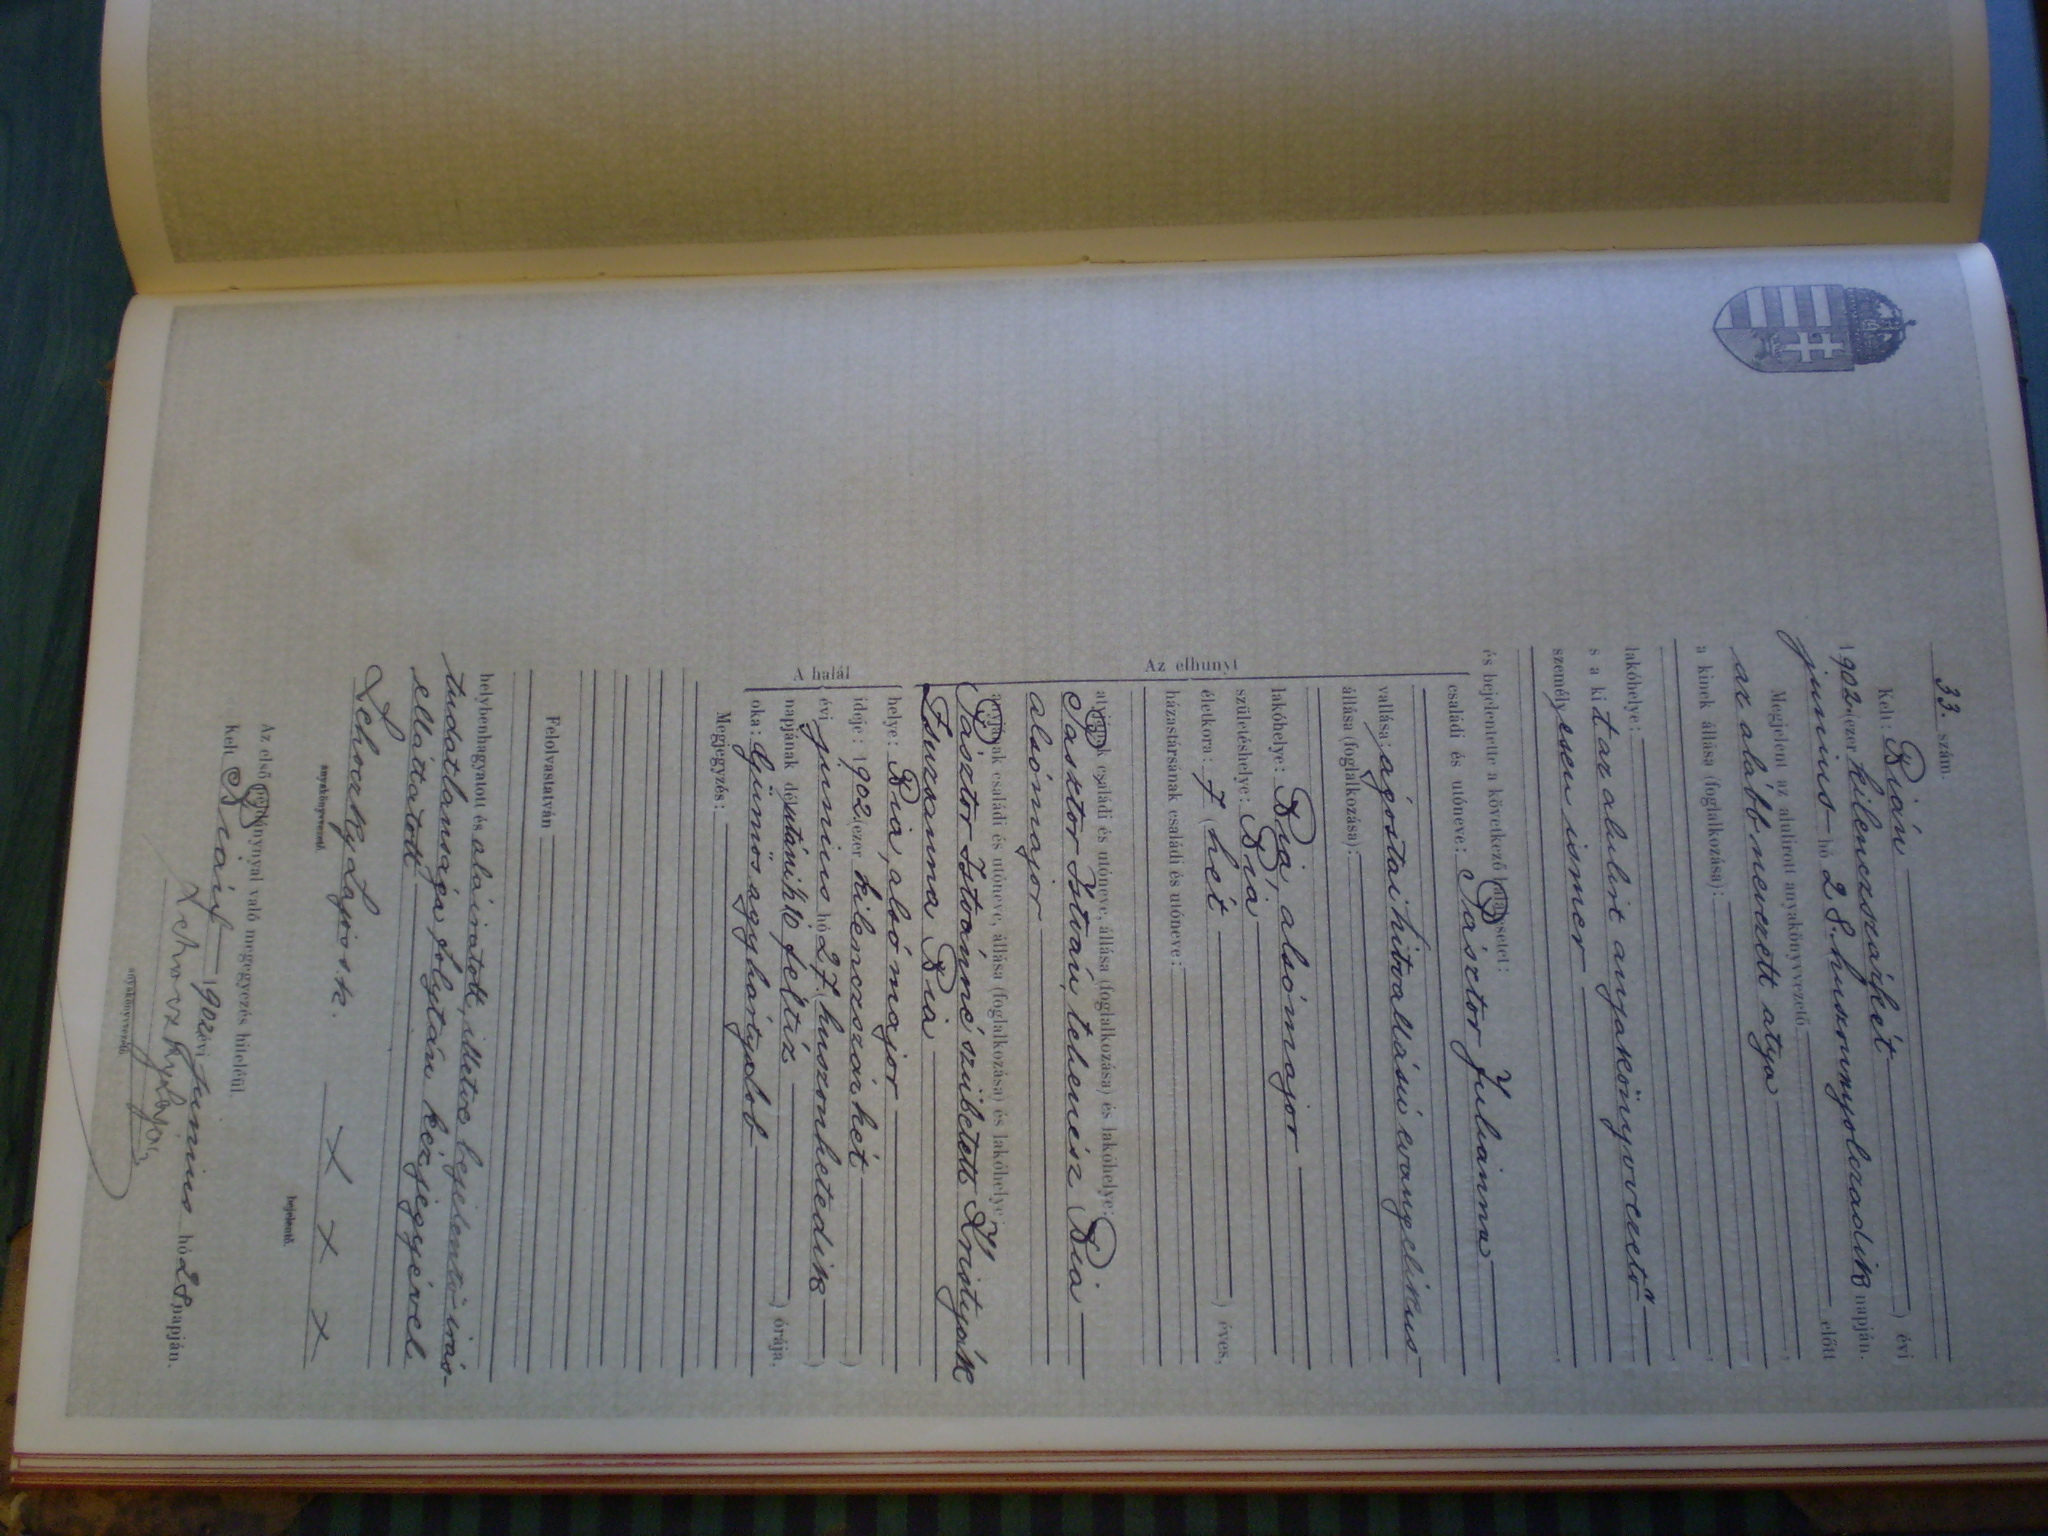 33. szám.
Kelt: Bián ) évi
1902. (ezer kilenczszázkét
junius hó 28. huszonnyolczadik napján.
Megjelent az alulirott anyakönyvvezető előtt
az alább nevezett atya ,
a kinek állása (foglalkozása):
,
lakóhelye: ,
s a kit az alulirt anyakönyvvezető
személyesen ismer ,
és bejelentette a következő halálesetet:
Az elhunyt
családi és utóneve: Pásztor Juliánna
vallása: ágostai hitvallású evangelikus
állása (foglalkozása):
lakóhelye: Bia, alsómajor
születéshelye: Bia
életkora: 7 (hét ) éves,
házastársának családi és utóneve:
atyjának családi és utóneve, állása (foglalkozása) és lakóhelye:
Pasztor István, tehenész Bia
alsómajor
anyjának családi és utóneve, állása (foglalkozása) és lakóhelye:
Pásztor Istvánné született Kristyák
Zsuzsanna Bia
A halál
helye: Bia, alsó major
ideje: 1902 (ezer kilenczszázkét )
évi junius hó 27. (huszonhetedik )
napjának délutáni ½10 féltíz ) órája.
oka: Gümős agyhártyalob
Megjegyzés:
Felolvastatván
helybenhagyatott és aláiratott, illetve bejelentő irás-
tudatlansága folytán kézjegyével
elláttatott
Lehoczky Lajos s.k. x x x
anyakönyvvezető. bejelentő.
Az első példánynyal való megegyezés hiteléül.
Kelt Bián 1902 évi junius hó 28 napján.
Lehoczky Lajos
anyakönyvvezető.